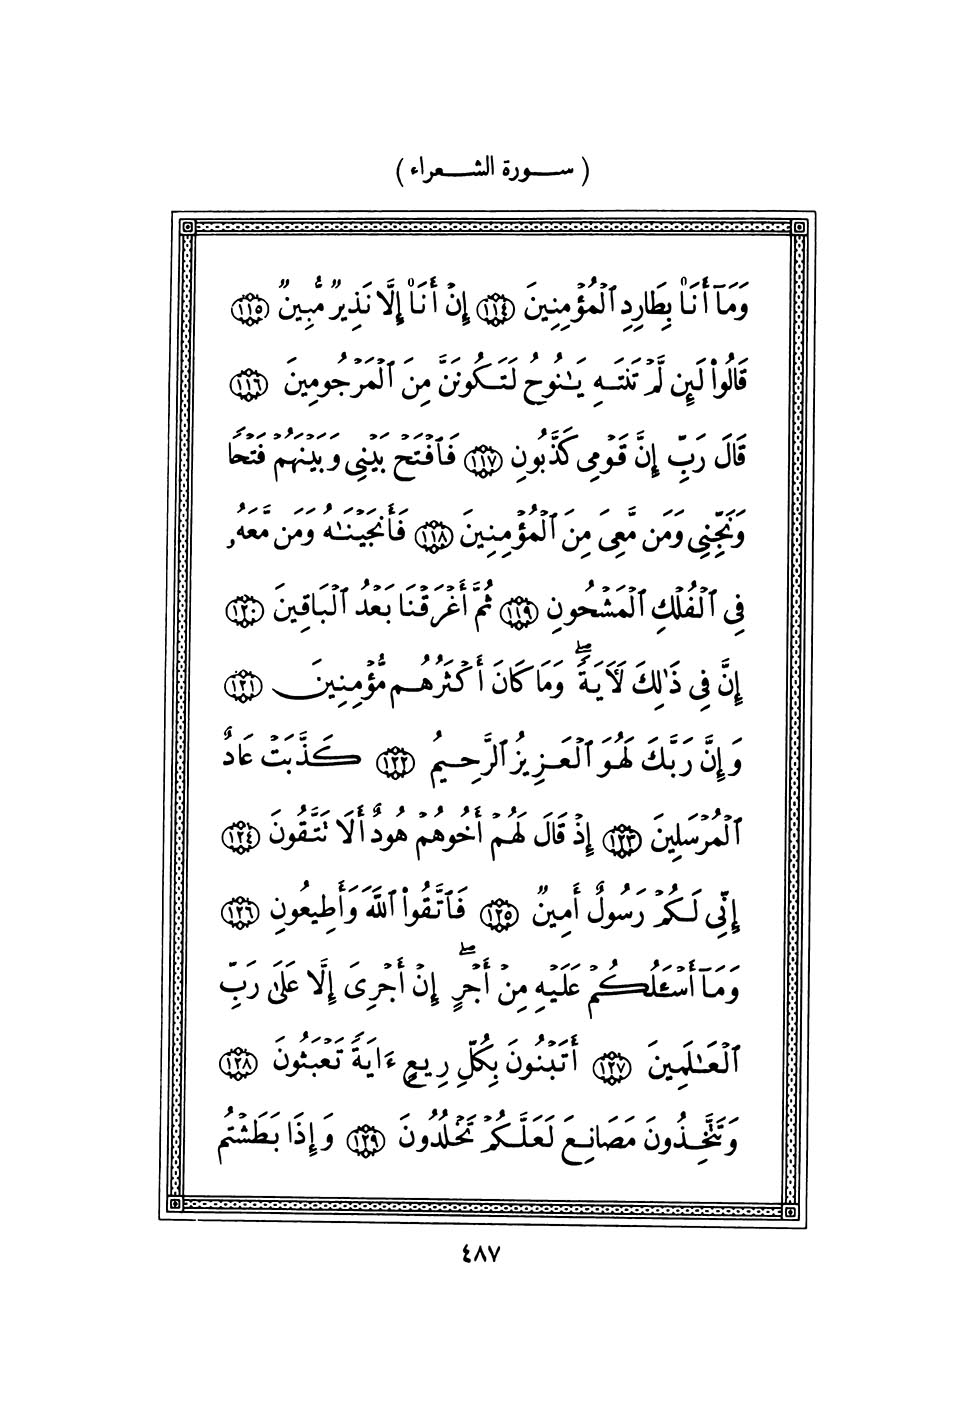 ( سورة الشعراء )
وَمَآ أَنَا۠ بِطَارِدِ ٱلْمُؤْمِنِينَ ١١٤ إِنْ أَنَا۠ إِلَّا نَذِيرٌ مُّبِينٌ ١١٥
قَالُوا۟ لَئِن لَّمْ تَنتَهِ يَـٰنُوحُ لَتَكُونَنَّ مِنَ ٱلْمَرْجُومِينَ ١١٦
قَالَ رَبِّ إِنَّ قَوْمِى كَذَّبُونِ ١١٧ فَٱفْتَحْ بَيْنِى وَبَيْنَهُمْ فَتْحًا
وَنَجِّنِى وَمَن مَّعِىَ مِنَ ٱلْمُؤْمِنِينَ ١١٨ فَأَنجَيْنَـٰهُ وَمَن مَّعَهُۥ
فِى ٱلْفُلْكِ ٱلْمَشْحُونِ ١١٩ ثُمَّ أَغْرَقْنَا بَعْدُ ٱلْبَاقِينَ ١٢٠
إِنَّ فِى ذَٰلِكَ لَـَٔايَةً ۖ وَمَا كَانَ أَكْثَرُهُم مُّؤْمِنِينَ ١٢١
وَإِنَّ رَبَّكَ لَهُوَ ٱلْعَزِيزُ ٱلرَّحِيمُ ١٢٢ كَذَّبَتْ عَادٌ
ٱلْمُرْسَلِينَ ١٢٣ إِذْ قَالَ لَهُمْ أَخُوهُمْ هُودٌ أَلَا تَتَّقُونَ ١٢٤
إِنِّى لَكُمْ رَسُولٌ أَمِينٌ ١٢٥ فَٱتَّقُوا۟ ٱللَّهَ وَأَطِيعُونِ ١٢٦
وَمَآ أَسْـَٔلُكُمْ عَلَيْهِ مِنْ أَجْرٍ ۖ إِنْ أَجْرِىَ إِلَّا عَلَىٰ رَبِّ
ٱلْعَـٰلَمِينَ ١٢٧ أَتَبْنُونَ بِكُلِّ رِيعٍ ءَايَةً تَعْبَثُونَ ١٢٨
وَتَتَّخِذُونَ مَصَانِعَ لَعَلَّكُمْ تَخْلُدُونَ ١٢٩ وَإِذَا بَطَشْتُم
٤٨٧